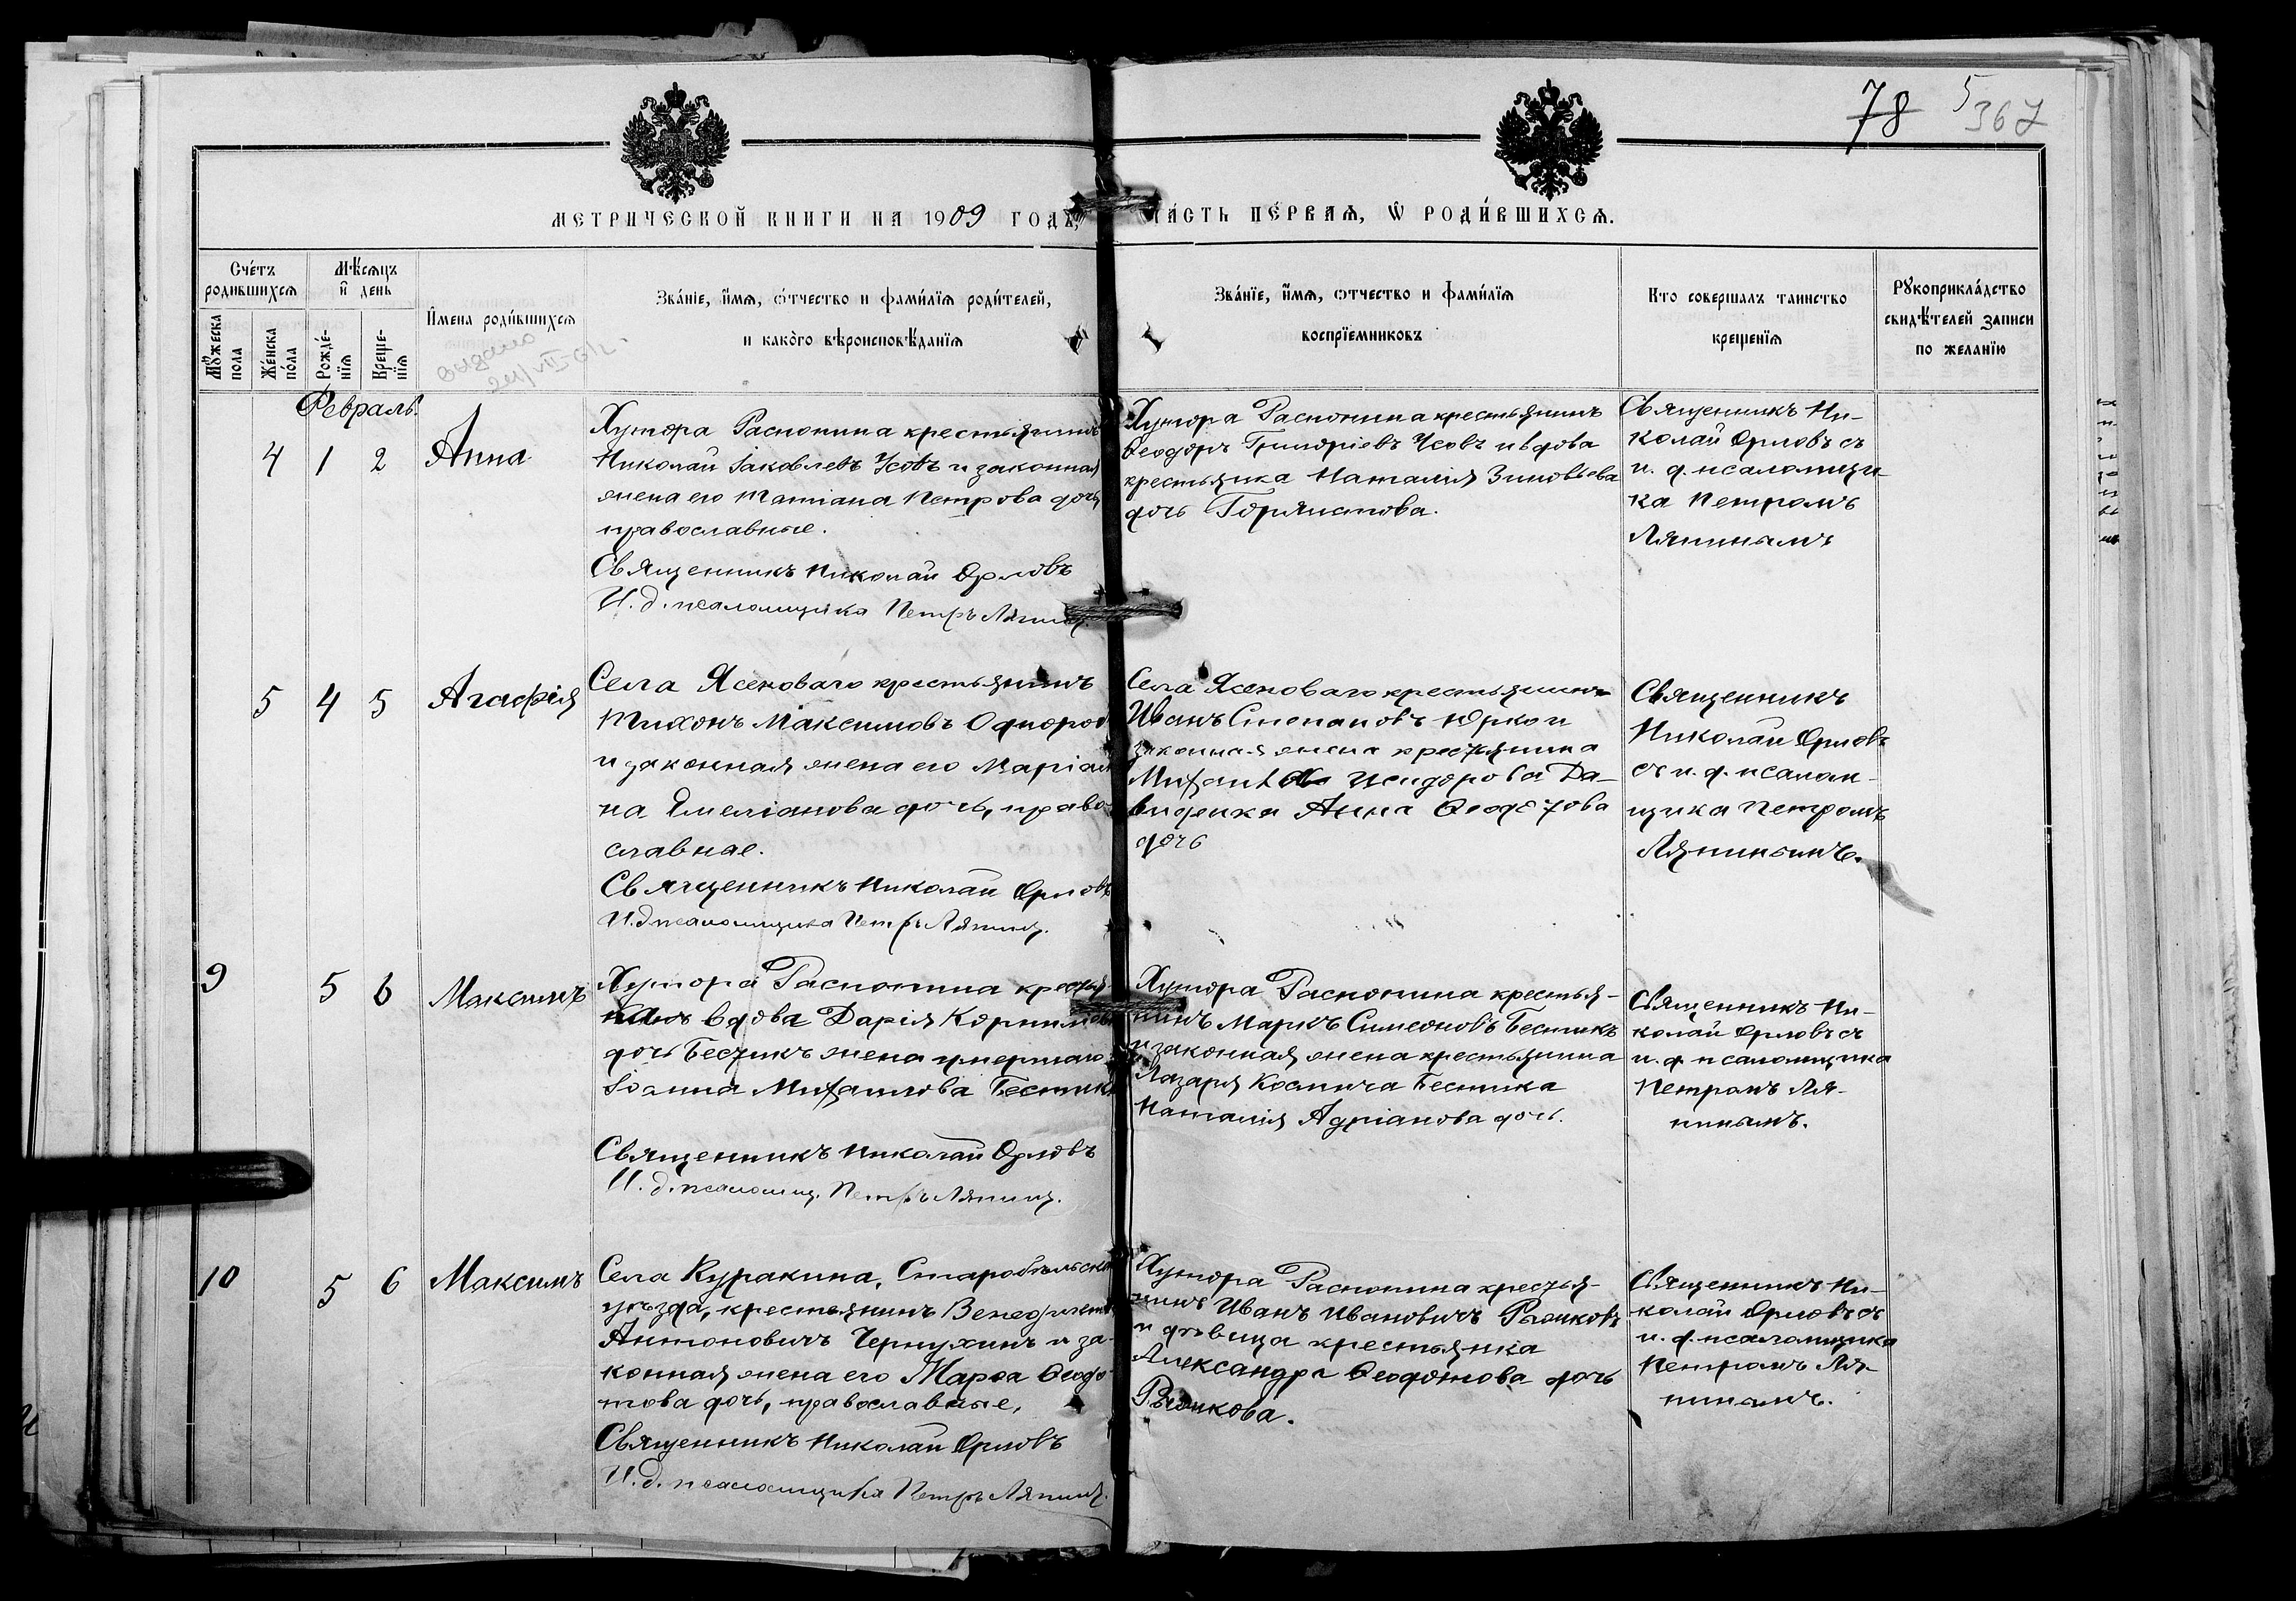 78 5
367
МЕТРИЧЕСКОЙ КНИГИ НА 1909 ГОДЪ,
ЧА́СТЬ ПЕ́РВАѦ, Ѡ РОДИ́ВШИХСѦ.
Сче́тъ родившихсѧ
Мѣ́сѧцъ и̑ день
И̑мена роди́вшихсѧ
Зва́нїе, и̑́мѧ, о́тчество и фами́лїѧ роди́телей,
и како́го вѣроисповѣ́данїѧ
Зва́нїе, и̑́мѧ, отчество и фами́лїѧ
воспрїемниковъ
Кто совершалъ таинство
крещенїѧ
Рꙋкоприкла́дство
свидѣ́телей записи
по желанїю
Мꙋ́жеска пола
Же́нска по́ла
Рожде́-нїѧ
Креще-нїѧ
выдано
24/VII-61 г.
Февраль.
4 1 2 Анна
Хутора Распопина крестьянинъ
Николай Іаковлевъ Усовъ и законная
жена его Татіана Петрова дочь,
православные.
Священникъ Николай Орловъ
И. д. псаломщика Петръ Ляпинъ.
Хутора Распопина крестьянинъ
Ѳеодоръ Григоріевъ Усовъ и вдова
крестьянка Наталія Зиновьева
дочь
Священникъ Ни-
колай Орловъ съ
и. д. псаломщи-
ка Петромъ
Ляпинымъ
5 4 5 Агафія
Села Ясеноваго крестьянинъ
Тихонъ Максимовъ Однород
и законная жена его Маріан
на Емеліанова дочь, право-
славные.
Священникъ Николай Орловъ
И. д псаломщика Петръ Ляпинъ.
Села Ясеноваго крестьянинъ
Иванъ Степановъ Юрко и
законная жена крестьянина
Исидорова Да-
виденка Анна Ѳеодотова
дочь
Священникъ
Николай Орловъ
съ и. д. псалом-
щика Петромъ
Ляпинымъ.
9 5 6 Максимъ
Хутора Распопина крестья-
вдова Дарія Корнилова
дочь Бесчикъ жена умершаго
Іоанна Михаилова
Священникъ Николай Орловъ
И. д. псаломщ. Петръ Ляпинъ.
Хутора Распопина крестья-
нинъ Маркъ Симеоновъ
и законная жена крестьянина
Лазаря Космича
Наталія Адріанова дочь.
Священникъ Ни-
колай Орловъ съ
и. д псаломщика
Петромъ Ля-
пинымъ.
10 5 6 Максимъ
Села Куракина, Старобѣльскаго
уѣзда, крестьянинъ Венедиктъ
Антоновичъ Чернухинъ и за-
конная жена его Марѳа Ѳеодо-
това дочь, православные,
Священникъ Николай Орловъ
И. д. псаломщика Петръ Ляпинъ.
Хутора Распопина крестья-
нинъ Иванъ Ивановичъ
и дѣвица крестьянка
Александра Ѳеодотова дочь
Священникъ Ни-
колай Орловъ съ
и. д. псаломщика
Петромъ Ля-
пинымъ.